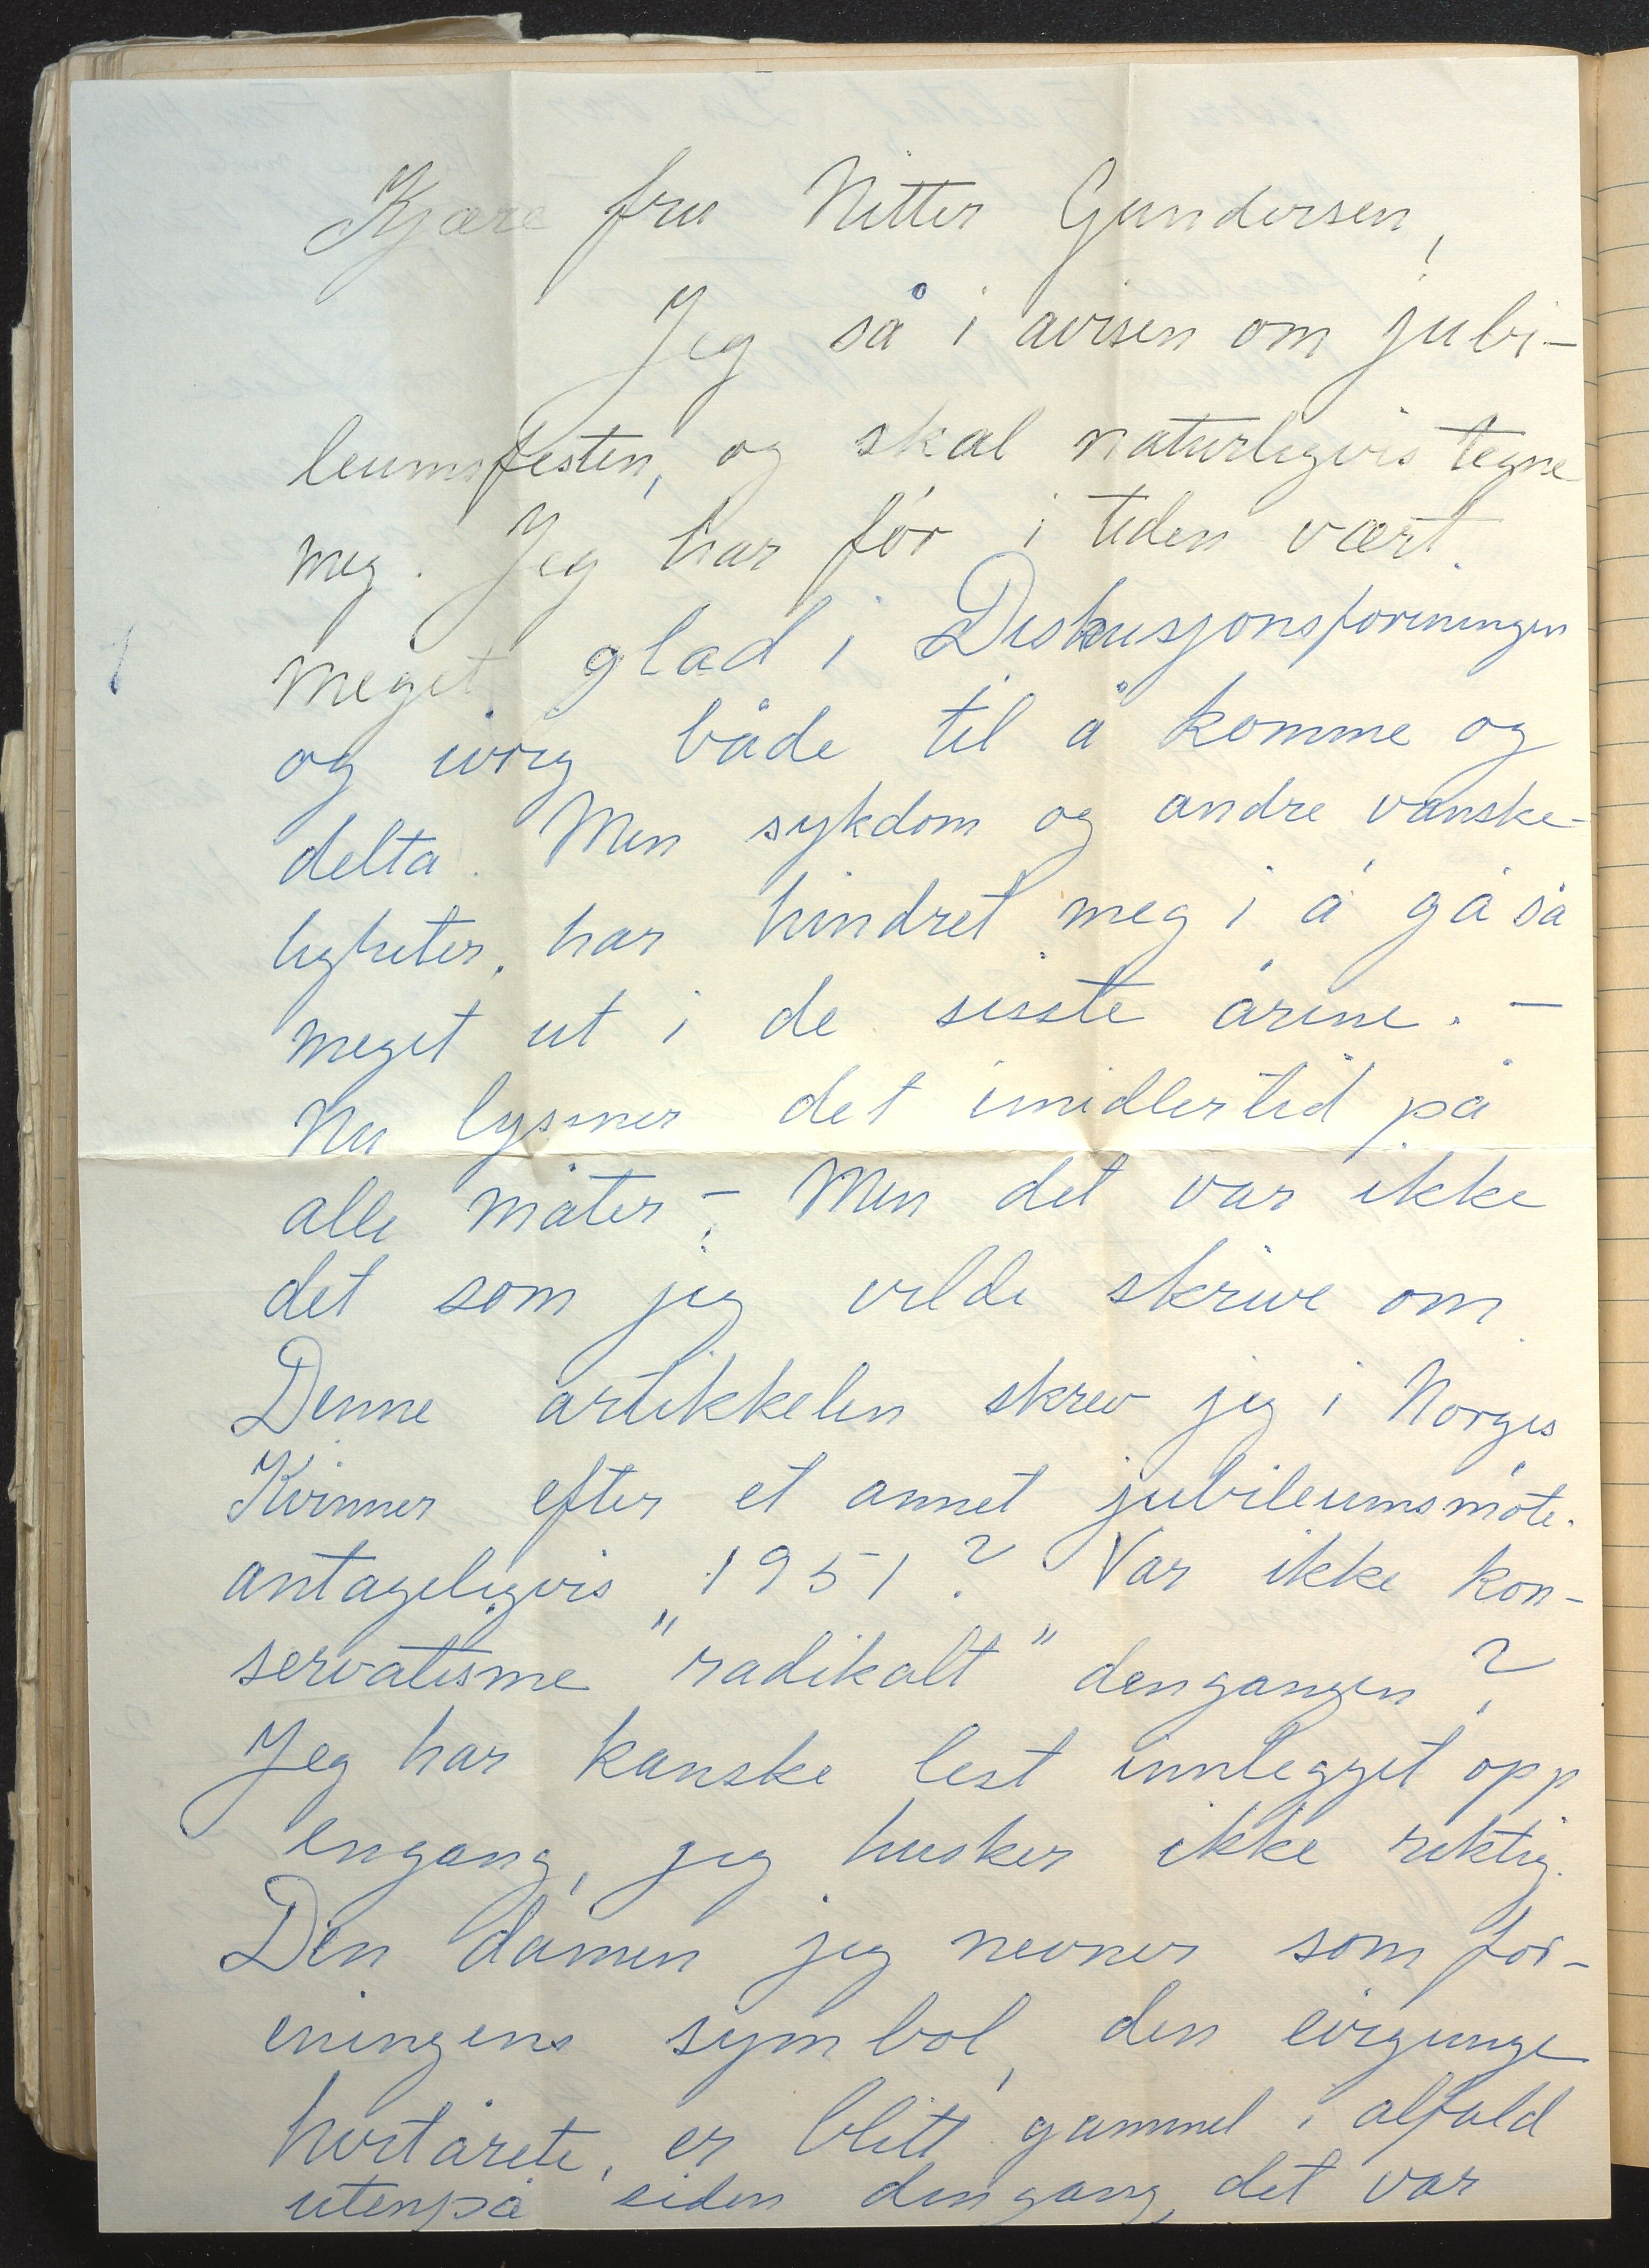 Kjære fru Nitter Gundersen,
Jeg så i avisen om jubi-
leumsfesten, og skal naturligvis tegne
meg. Jeg har før i tiden vært
meget glad i Diskusjonsforeningen
og ivrig både til å komme og
delta. Men sykdom og andre vanske-
ligheter, har hindret meg i å gå så
meget ut i de sisste årene. –
Nu lysner det imidlertid på
alle måter –. Men det var ikke
det som jeg vilde skrive om.
Denne artikkelen skrev jeg i Norges
Kvinner efter et annet jubileumsmøte.
antageligvis 1951? Var ikke kon-
servatisme "radikalt" dengangen?
Jeg har kanske lest innlegget opp
engang, jeg husker ikke riktig.
Den damen jeg nevner som for-
eningens symbol, den evigunge
hvithårete, er blitt gammel i alfald
utenpå siden dengang, det var